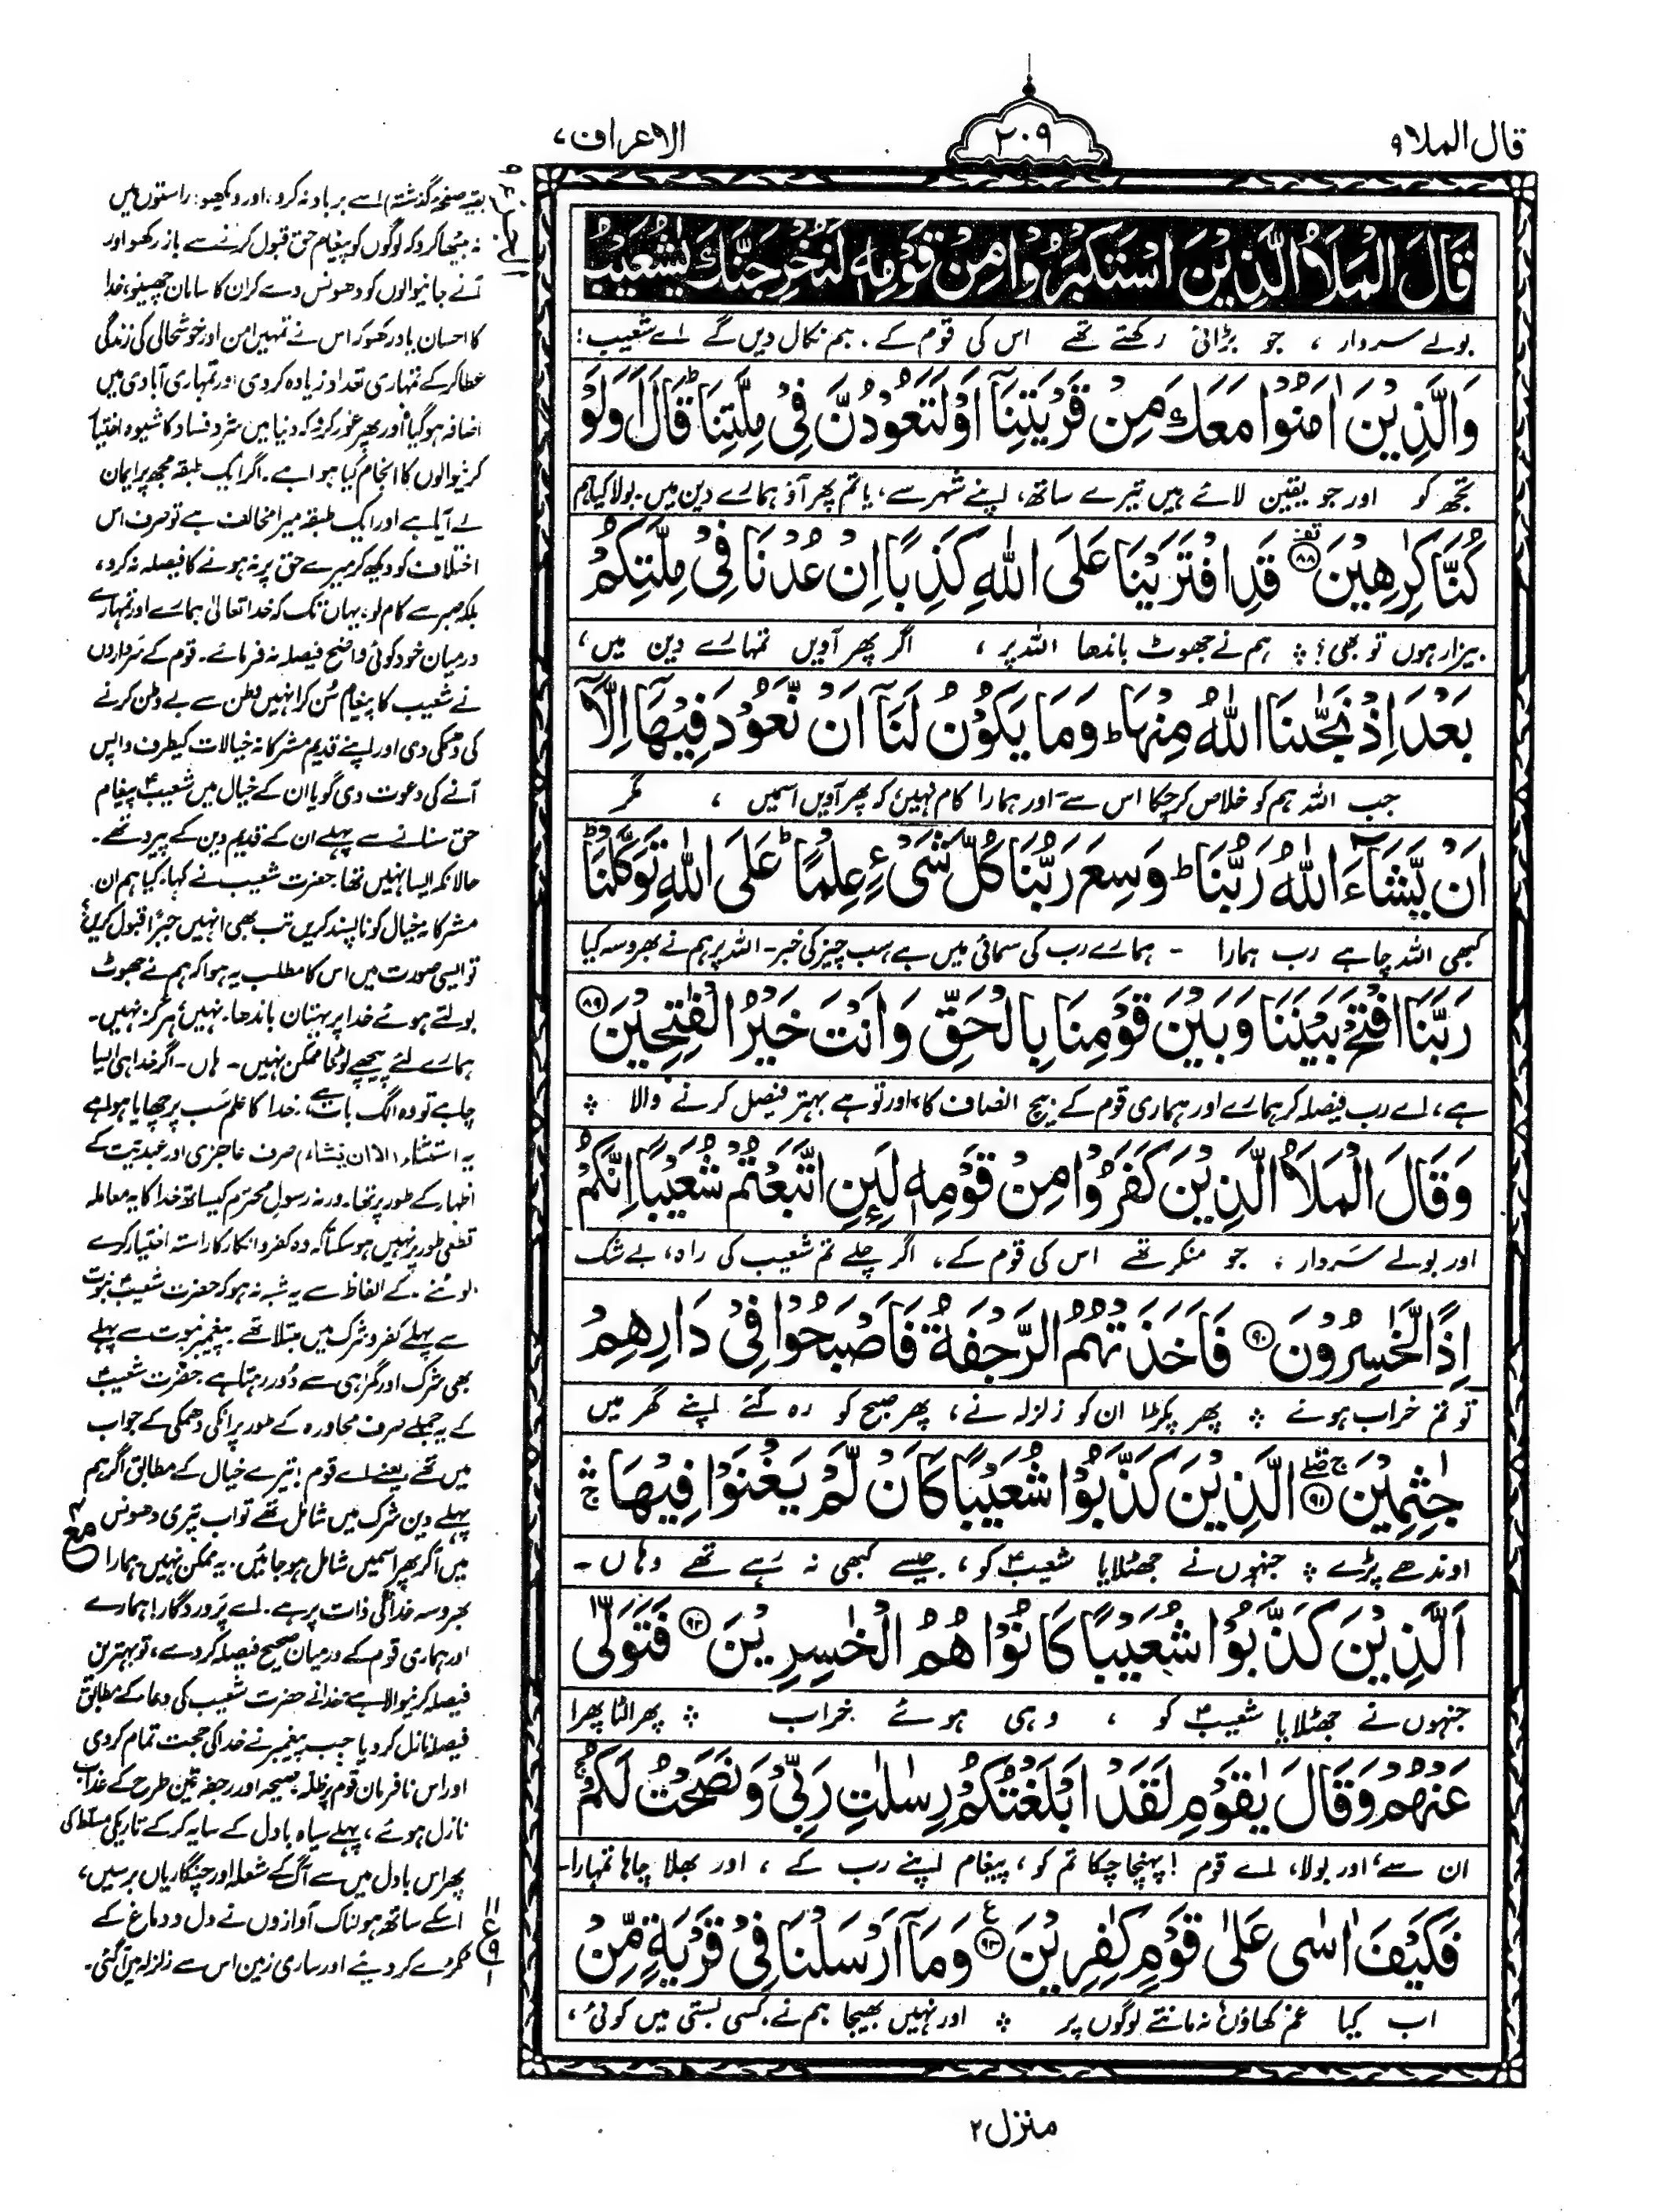 قال الملا ۹
۲۰۹
الاعراف ۷
قَالَ الْمَلَاُ الَّذِيْنَ اسْتَكْبَرُوْا مِنْ قَوْمِهٖ لَنُخْرِجَنَّكَ يٰشُعَيْبُ
بولے سردار ، جو بڑائی رکھتے تھے اس کی قوم کے ۔ ہم نکال دیں گے اے شعیب !
وَالَّذِيْنَ اٰمَنُوْا مَعَكَ مِنْ قَرْيَتِنَآ اَوْ لَتَعُوْدُنَّ فِيْ مِلَّتِنَا ؕ قَالَ اَوَلَوْ
تجھ کو اور جو یقین لائے ہیں تیرے ساتھ، اپنے شہر سے، یا تم پھر آؤ ہمارے دین میں ۔ بولا کیا ہم
كُنَّا كٰرِهِيْنَ ۸۸ قَدِ افْتَرَيْنَا عَلَى اللّٰهِ كَذِبًا اِنْ عُدْنَا فِيْ مِلَّتِكُمْ
بیزار ہوں تو بھی؟ ※ ہم نے جھوٹ باندھا اللہ پر ، اگر پھر آویں تمہارے دین میں ،
بَعْدَ اِذْ نَجّٰىنَا اللّٰهُ مِنْهَا ؕ وَمَا يَكُوْنُ لَنَآ اَنْ نَّعُوْدَ فِيْهَآ اِلَّآ
جب اللہ ہم کو خلاص کر چکا اس سے ۔ اور ہمارا کام نہیں، کہ پھر آویں اسمیں ، مگر
اَنْ يَّشَآءَ اللّٰهُ رَبُّنَا ؕ وَسِعَ رَبُّنَا كُلَّ شَيْءٍ عِلْمًا ؕ عَلَى اللّٰهِ تَوَكَّلْنَا ؕ
کبھی اللہ چاہے رب ہمارا ۔ ہمارے رب کی سمائی میں ہے سب چیز کی خبر ۔ اللہ پر ہم نے بھروسہ کیا
رَبَّنَا افْتَحْ بَيْنَنَا وَبَيْنَ قَوْمِنَا بِالْحَقِّ وَاَنْتَ خَيْرُ الْفٰتِحِيْنَ ۸۹
ہے ، اے رب فیصلہ کر ہمارے اور ہماری قوم کے بیچ انصاف کا، اور تو ہے بہتر فیصل کرنے والا ※
وَقَالَ الْمَلَاُ الَّذِيْنَ كَفَرُوْا مِنْ قَوْمِهٖ لَئِنِ اتَّبَعْتُمْ شُعَيْبًا اِنَّكُمْ
اور بولے سردار ، جو منکر تھے اس کی قوم کے، اگر چلے تم شعیب کی راہ ، بے شک
اِذًا لَّخٰسِرُوْنَ ۹۰ فَاَخَذَتْهُمُ الرَّجْفَةُ فَاَصْبَحُوْا فِيْ دَارِهِمْ
تو تم خراب ہوئے ※ پھر پکڑا ان کو زلزلہ نے ، پھر صبح کو رہ گئے اپنے گھر میں
جٰثِمِيْنَ ۹۱ الَّذِيْنَ كَذَّبُوْا شُعَيْبًا كَاَنْ لَّمْ يَغْنَوْا فِيْهَا ۛ ج
اوندھے پڑے ※ جنہوں نے جھٹلایا شعیبؑ کو ، جیسے کبھی نہ رہے تھے وہاں ۔
اَلَّذِيْنَ كَذَّبُوْا شُعَيْبًا كَانُوْا هُمُ الْخٰسِرِيْنَ ۹۲ فَتَوَلّٰى
جنہوں نے جھٹلایا شعیبؑ کو ، وہی ہوئے خراب ※ پھر الٹا پھرا
عَنْهُمْ وَقَالَ يٰقَوْمِ لَقَدْ اَبْلَغْتُكُمْ رِسٰلٰتِ رَبِّيْ وَنَصَحْتُ لَكُمْ ۚ
ان سے، اور بولا، اے قوم ! پہنچا چکا تم کو، پیغام اپنے رب کے ، اور بھلا چاہا تمہارا۔
فَكَيْفَ اٰسٰى عَلٰى قَوْمٍ كٰفِرِيْنَ ۹۳ وَمَآ اَرْسَلْنَا فِيْ قَرْيَةٍ مِّنْ
اب کیا غم کھاؤں نہ مانتے لوگوں پر ※ اور نہیں بھیجا ہم نے کسی بستی میں کوئی ،
بقیہ صفحہ گذشتہ) اسے برباد نہ کرو، اور دیکھو: راستوں میں
نہ بیٹھا کرو کہ لوگوں کو پیغام حق قبول کرنے سے باز رکھو اور
آنے جانیوالوں کو دھونس دے کر ان کا سامان چھینو، خدا
کا احسان یاد رکھو کہ اس نے تمہیں امن اور خوشحالی کی زندگی
عطا کر کے تمہاری تعداد زیادہ کر دی اور تمہاری آبادی میں
اضافہ ہو گیا اور پھر غور کرو کہ دنیا میں شر و فساد کا شیوہ اختیار
کرنیوالوں کا انجام کیا ہوا ہے ۔ اگر ایک طبقہ مجھ پر ایمان
لے آیا ہے اور ایک طبقہ میرا مخالف ہے تو صرف اس
اختلاف کو دیکھ کر میرے حق پر نہ ہونے کا فیصلہ نہ کرو ،
بلکہ صبر سے کام لو، یہاں تک کہ خدا تعالیٰ ہمارے اور تمہارے
درمیان خود کوئی واضح فیصلہ نہ فرمائے ۔ قوم کے سرداروں
نے شعیب کا پیغام سُن کر انہیں وطن سے بے وطن کرنے
کی دھمکی دی اور اپنے قدیم مشرکانہ خیالات کیطرف واپس
آنے کی دعوت دی گویا ان کے خیال میں شعیبؑ پیغام
حق سنانے سے پہلے ان کے قدیم دین کے پیرو تھے ۔
حالانکہ ایسا نہیں تھا ۔ حضرت شعیب نے کہا، کیا ہم ان
مشرکانہ خیال کو ناپسند کریں تب بھی انہیں جبراً قبول کریں؟
تو ایسی صورت میں اس کا مطلب یہ ہوا کہ ہم نے جھوٹ
بولتے ہوئے خدا پر بہتان باندھا ۔ نہیں، ہرگز نہیں ۔
ہمارے لئے پیچھے لوٹنا ممکن نہیں ۔ ہاں ۔ اگر خدا ہی ایسا
چاہے تو وہ الگ بات ہے، خدا کا علم سب پر چھایا ہوا ہے
یہ استثناء (الا ان یشاء) صرف عاجزی اور عبدیت کے
اظہار کے طور پر تھا ۔ ورنہ رسول محترم کیساتھ خدا کا یہ معاملہ
قطعی طور پر نہیں ہو سکتا کہ وہ کفر و انکار کا راستہ اختیار کرے
لوٹنے ۔ کے الفاظ سے یہ شبہ نہ ہو کہ حضرت شعیبؑ نبوت
سے پہلے کفر و شرک میں مبتلا تھے ۔ پیغمبر نبوت سے پہلے
بھی شرک اور گمراہی سے دُور رہتا ہے ۔ حضرت شعیبؑ
کے یہ جملے صرف محاورہ کے طور پر انکی دھمکی کے جواب
میں تھے یعنے اے قوم ! تیرے خیال کے مطابق اگر ہم
پہلے دین شرک میں شامل تھے تو اب تیری دھونس
میں آ کر پھر اسمیں شامل ہو جائیں ۔ یہ ممکن نہیں ہمارا
بھروسہ خدا کی ذات پر ہے ۔ اے پروردگار! ہمارے
اور ہماری قوم کے درمیان صحیح فیصلہ کر دے ، تو بہترین
فیصلہ کرنیوالا ہے خدا نے حضرت شعیب کی دعا کے مطابق
فیصلہ نازل کر دیا جب پیغمبر نے خدا کی حجت تمام کر دی
اور اس نافرمان قوم پر ظلہ، صیحہ اور رجفہ تین طرح کے عذاب
نازل ہوئے ، پہلے سیاہ بادل کے سایہ کر کے تاریکی مسلط کی
پھر اس بادل میں سے آگ کے شعلہ اور چنگاریاں برسیں ،
اسکے ساتھ ہولناک آوازوں نے دل و دماغ کے
ٹکڑے کر دیئے اور ساری زمین اس سے زلزلہ میں آ گئی ۔
منزل ۲